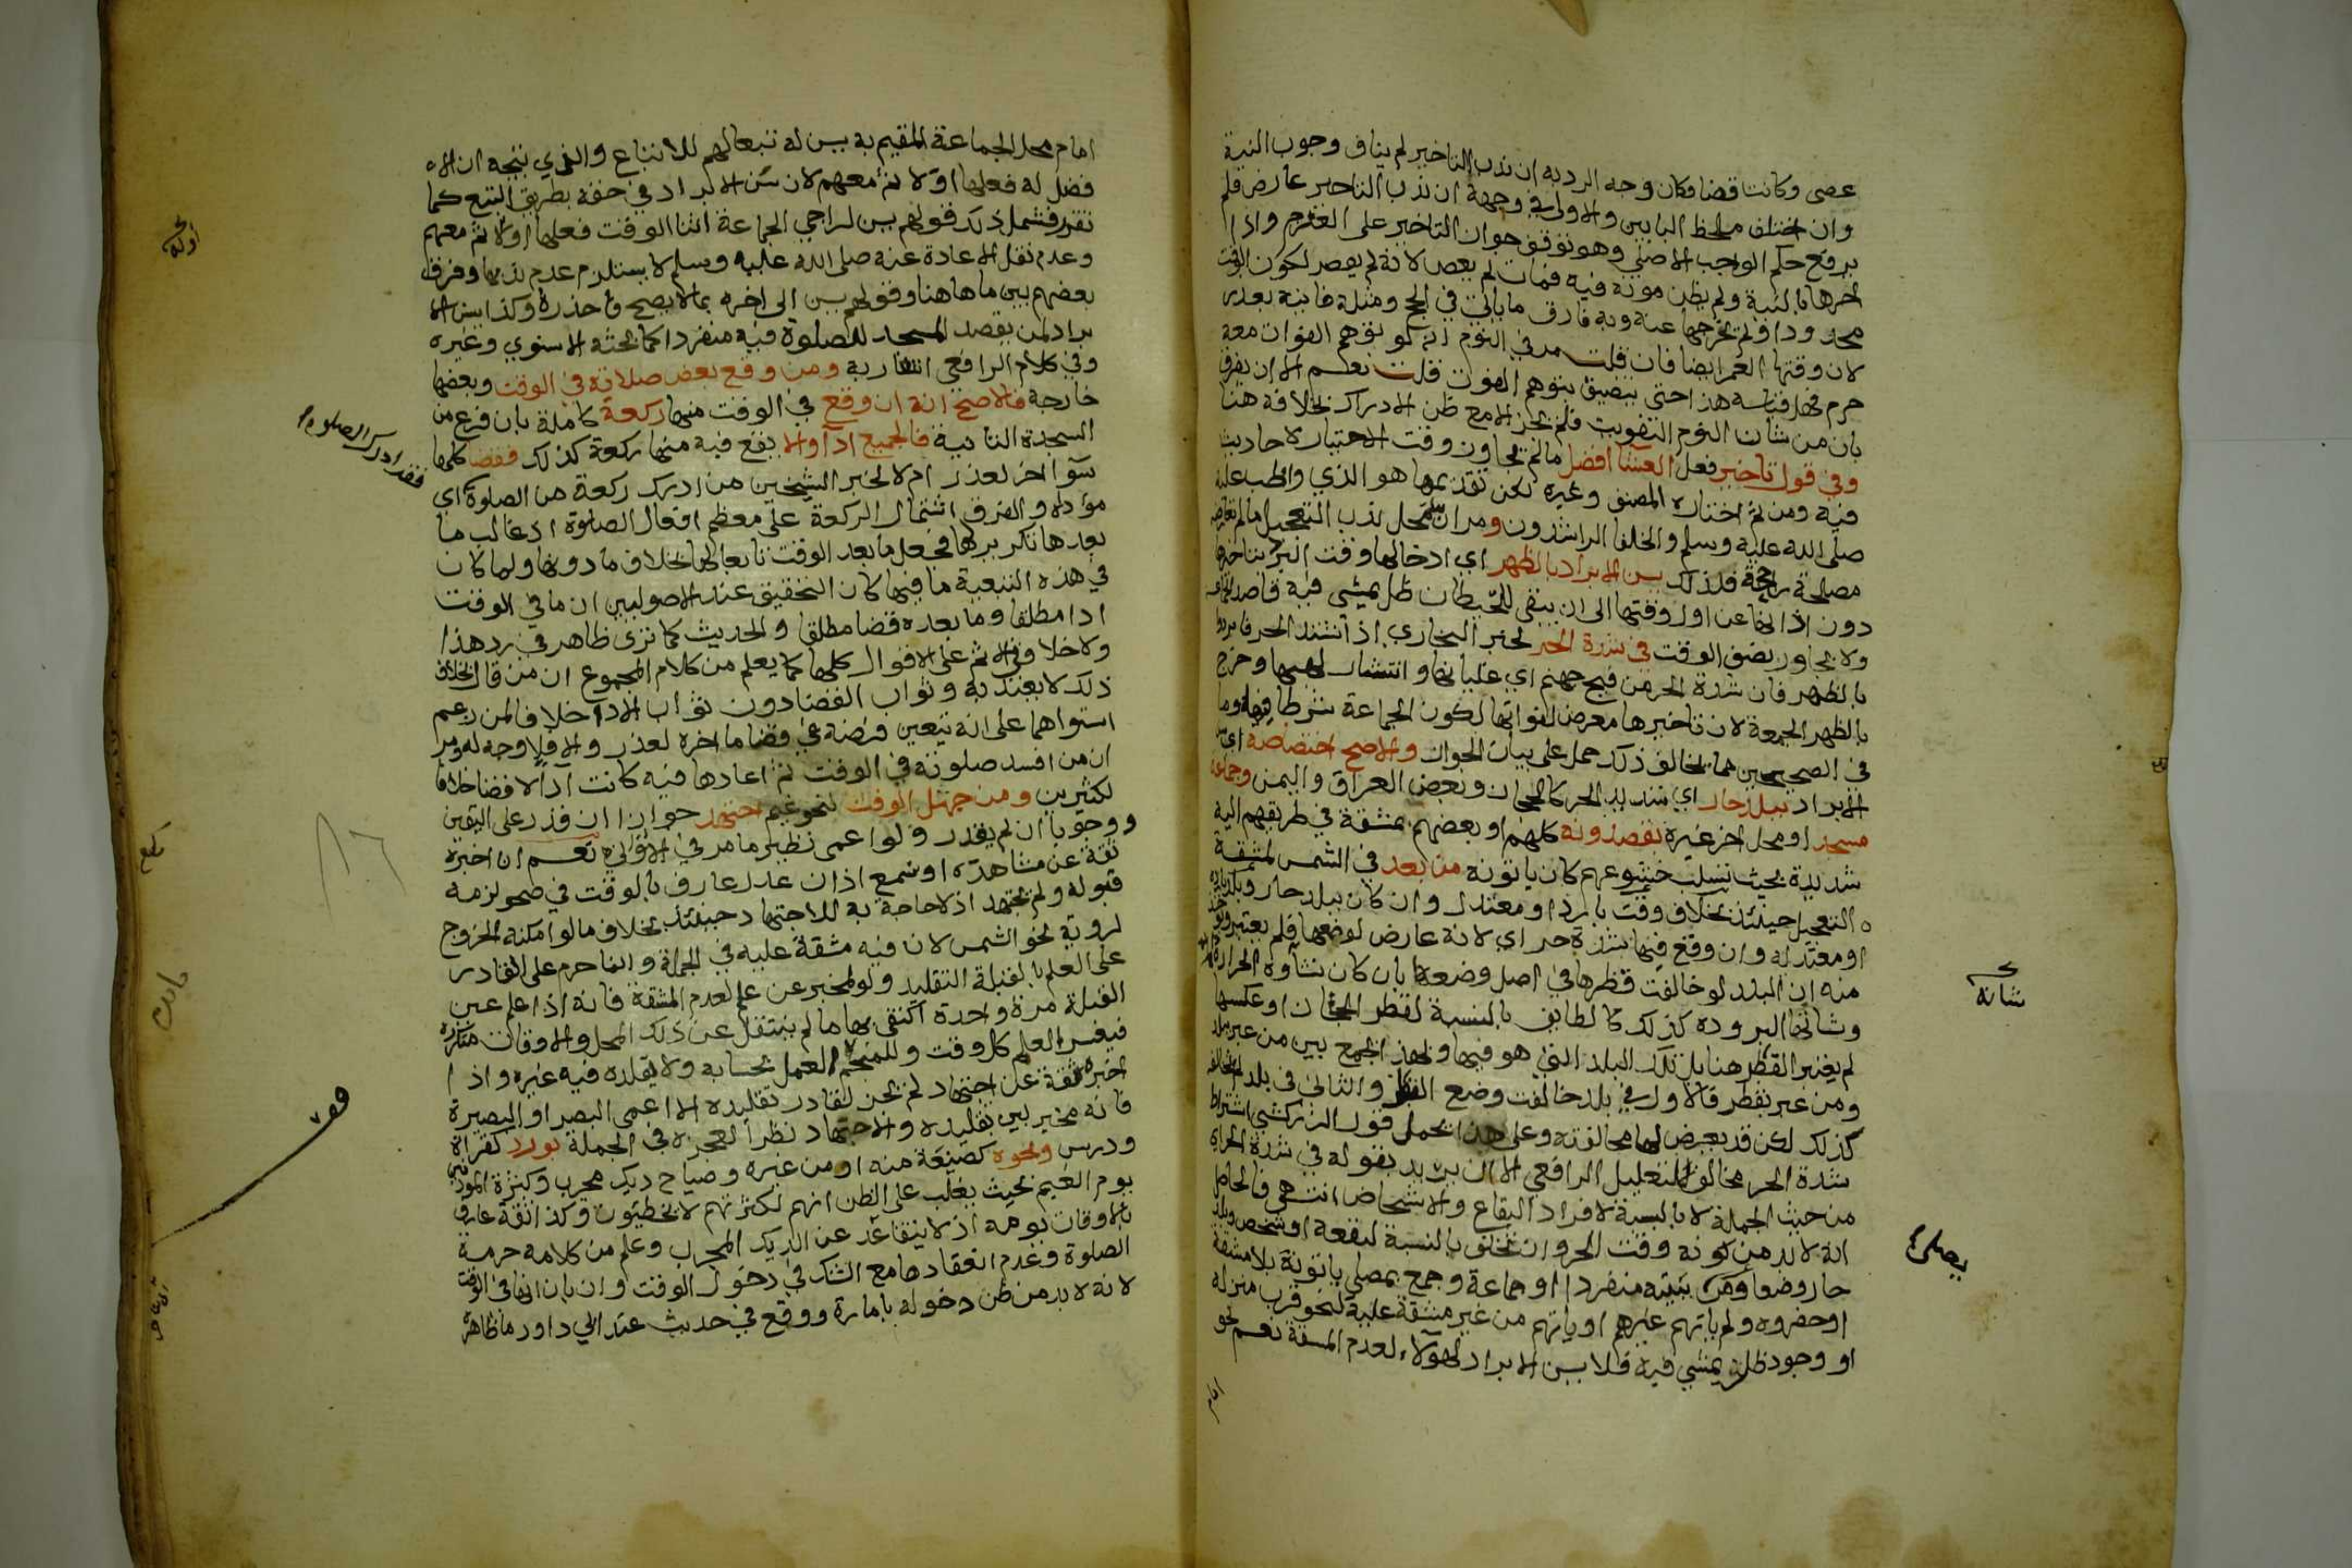 عصى وكانت قضا فكان وجه الرد به ان ندب التاخير لم يناف وجوب النية
وان اختلف ملحظ البابين والاولى في وجهه ان ندب التاخير عارض فلم
يرفع حكم الواجب الاصلي وهو توقف جواز التاخير على العزم واذا
اخرها بالنية ولم يظن موته فيه فمات لم يعص لانه لم يقصر لكون الوقت
محدودا ولم يخرجها عنه وبه فارق ما ياتي في الحج ومثله فائتة بعذر
لان وقتها العمر ايضا فان قلت مر في النوم انه لو توهم الفوات معه
حرم فهل قياسه هذا حتى يتضيق بتوهم الفوت قلت نعم الا ان يفرق
بان من شان النوم التفويت فلم يجز الا مع ظن الادراك بخلافه هنا
وفي قول تاخير فعل العشا افضل ما لم يجاوز وقت الاختيار لاحاديث
فيه ومن ثم اختاره المصنف وغيره لكن تقديمها هو الذي واظب عليه
صلى الله عليه وسلم والخلفا الراشدون ومر ان محل ندب التعجيل ما لم يعارضه
مصلحة راجحة فلذلك يسن الابراد بالظهر اي ادخالها وقت البرد بتاخيرها
دون اذانها عن اول وقتها الى ان يبقى للحيطان ظل يمشي فيه قاصد الجماعة
ولا يجاوز نصف الوقت في شدة الحر لخبر البخاري اذا اشتد الحر فابردوا
بالظهر فان شدة الحر من فيح جهنم اي غليانها وانتشار لهبها وخرج
بالظهر الجمعة لان تاخيرها معرض لفواتها لكون الجماعة شرطا فيها وما
في الصحيحين مما يخالف ذلك حمل على بيان الجواز والاصح اختصاصه اي
الابراد ببلد حار اي شديد الحر كالحجاز وبعض العراق واليمن وجماعة
مسجد او محل اخر غيره يقصدونه كلهم او بعضهم بمشقة في طريقهم اليه
شديدة بحيث تسلب خشوعهم كان ياتونه من بعد في الشمس لمشقة
التعجيل حينئذ بخلاف وقت بارد او معتدل وان كان ببلد حار وبلد بارد
او معتدله وان وقع فيها شدة حر اي لانه عارض لوضعها فلم يعتبر ويؤخذ
منه ان البلد لو خالفت قطرها في اصل وضعه بان كان شانه الحرارة
وشانها البرودة كذلك كالطايف بالنسبة لقطر الحجاز او عكسها
لم يعتبر القطر هنا بل تلك البلد التي هو فيها وبهذا يجمع بين من عبر ببلد
ومن عبر بقطر فالاول في بلد خالفت وضع القطر والثاني في بلد لم تخالفه
كذلك لكن قد يعرض لها مخالفته وعلى هذا يحمل قول الزركشي اشتراط
شدة الحر مخالف لتعليل الرافعي الا ان يريد بقوله في شدة الحر اي
من حيث الجملة لا بالنسبة لافراد البقاع والاشخاص انتهى فالحاصل
انه لا بد من كونه وقت الحر وان تخلف بالنسبة لبقعة او شخص وبلد
حار وضعا ومن بيته منفردا او جماعة وجمع بمصلى ياتونه بلا مشقة
او حضروه ولم ياتهم غيرهم او ياتهم من غير مشقة عليه لنحو قرب منزله
او وجود ظل يمشي فيه فلا يسن الابراد لهولاء لعدم المشقة نعم نحو
امام
شانه
يصلي
امام محل الجماعة المقيم به يسن له تبعا لهم للاتباع والذي يتجه ان الا
فضل له فعلها اولا ثم معهم لان سن الابراد في حقه بطريق التبع كما
تقرر فشمل ذلك قولهم يسن لراجي الجماعة اثنا الوقت فعلها اولا ثم معهم
وعدم نقل الاعادة عنه صلى الله عليه وسلم لا يستلزم عدم ندبها وفرق
بعضهم بين ما هاهنا وقولهم يسن الى اخره بما لا يصح فاحذره وكذا يسن الا
براد لمن يقصد المسجد للصلوة فيه منفردا كما بحثه الاسنوي وغيره
وفي كلام الرافعي اشارية ومن وقع بعض صلاته في الوقت وبعضها
خارجه فالاصح انه ان وقع في الوقت منها ركعة كاملة بان فرغ من
السجدة الثانية فالجميع ادا والا يقع فيه منها ركعة كذلك فقضا كلها
سوا اخر لعذر ام لا لخبر الشيخين من ادرك ركعة من الصلوة اي
مؤداة والفرق اشتمال الركعة على معظم افعال الصلوة اذ غالب ما
بعدها تكرير لها فجعل ما بعد الوقت تابعا لها بخلاف ما دونها ولما كان
في هذه التبعية ما فيها كان التحقيق عند الاصوليين ان ما في الوقت
ادا مطلقا وما بعده قضا مطلقا والحديث كما ترى ظاهر في رد هذا
ولا خلاف في الاثم على الاقوال كلها كما يعلم من كلام المجموع ان من قال بخلاف
ذلك لا يعتد به وثواب القضا دون ثواب الادا خلافا لمن زعم
استواهما على انه يتعين فرضه في قضا ما اخره لعذر والا فلا وجه له ومر
ان من افسد صلوته في الوقت ثم اعادها فيه كانت ادا لا قضا خلافا
لكثيرين ومن جهل الوقت لنحو غيم اجتهد جوازا ان قدر على اليقين
ووجوبا ان لم يقدر ولو اعمى نظير ما مر في الاواني نعم ان اخبره
ثقة عن مشاهدة او سمع اذان عدل عارف بالوقت في صحو لزمه
قبوله ولم يجتهد اذ لا حاجة به للاجتهاد حينئذ بخلاف ما لو امكنه الخروج
لروية نحو الشمس لان فيه مشقة عليه في الجملة وانما حرم على القادر
على العلم بالقبلة التقليد ولو لمخبر عن علم لعدم المشقة فانه اذا علم عين
القبلة مرة واحدة اكتفى بها ما لم ينتقل عن ذلك المحل والاوقات متكررة
فيعسر العلم كل وقت وللمنجم العمل بحسابه ولا يقلده فيه غيره واذا
اخبره ثقة عن اجتهاد لم يجز لقادر تقليده الا اعمى البصر او البصيرة
فانه مخير بين تقليده والاجتهاد نظرا لعجزه في الجملة بورد كقراة
ودرس ونحوه كصنعة منه او من غيره وصياح ديك مجرب وكثرة الموذنين
يوم الغيم بحيث يغلب على الظن انهم لكثرتهم لا يخطيون وكذا ثقة عارف
بالاوقات يومه اذ لا يتقاعد عن الديك المجرب وعلم من كلامه حرمة
الصلوة وعدم انعقادها مع الشك في دخول الوقت وان بان انها في الوقت
لانه لا بد من ظن دخوله بامارة ووقع في حديث عند ابي داود ما ظاهره
فقد ادرك الصلوة